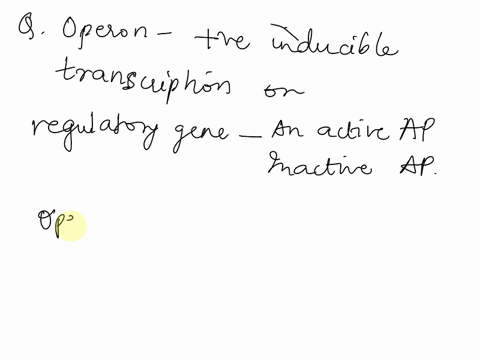 Q. Operon - +ve inducible
transcription on
regulatory gene - An active AP
Inactive AP.
Op